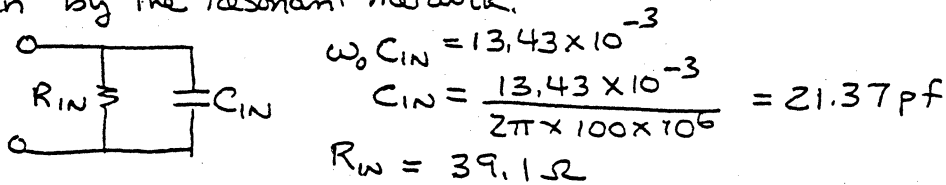 by the resonant network.
ω₀ C_IN = 13.43 × 10⁻³
C_IN = 13.43 × 10⁻³ / 2π × 100 × 10⁶ = 21.37 pf
R_IN C_IN
R_IN = 39.1 Ω